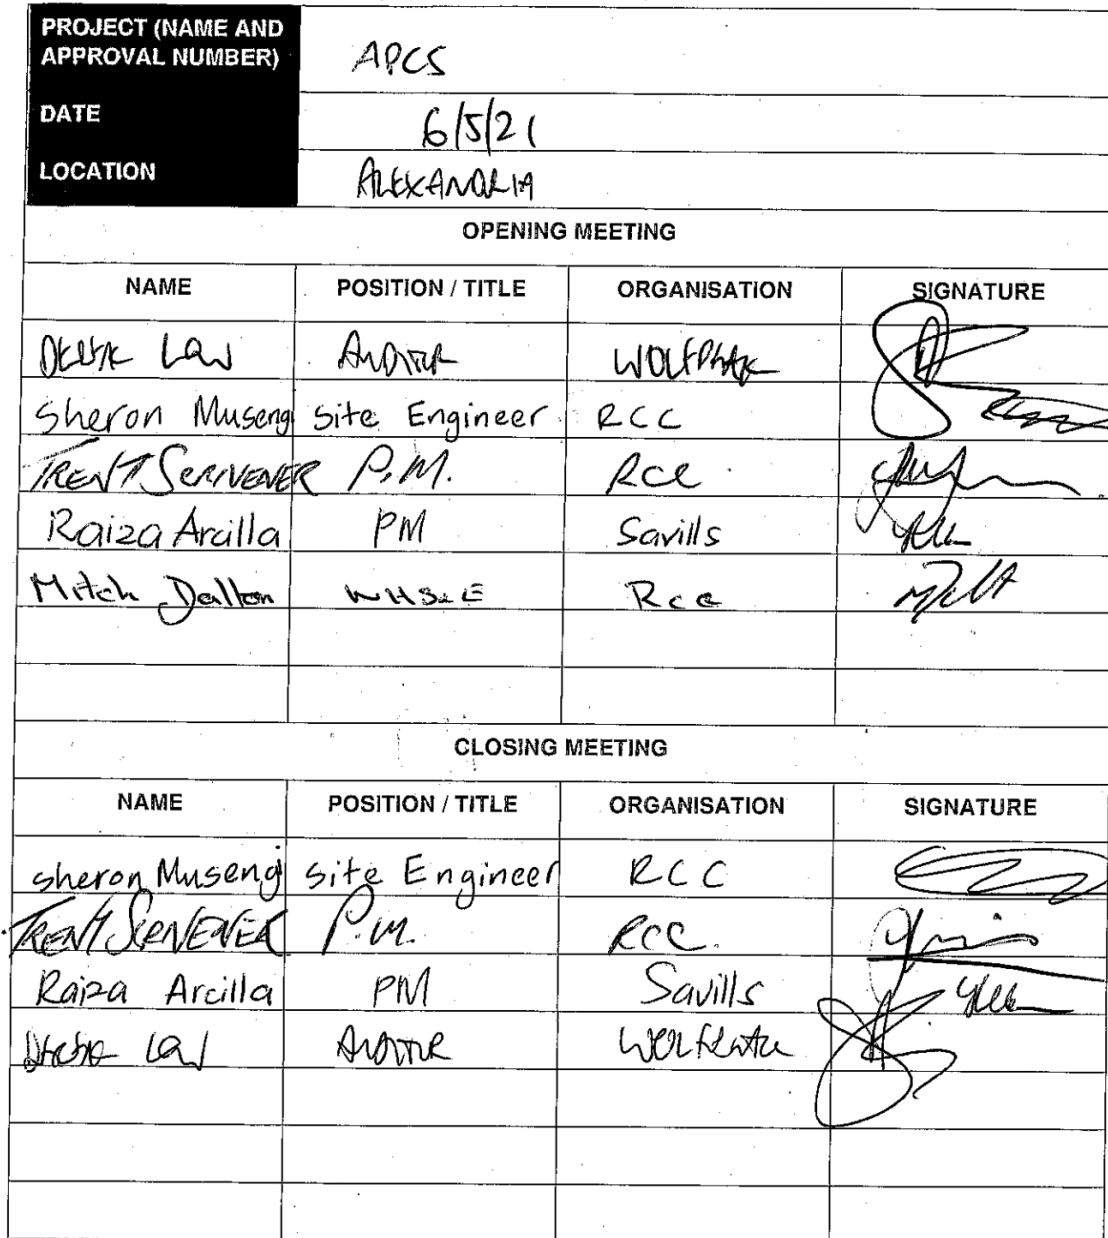 PROJECT (NAME AND
APPROVAL NUMBER)
APCS
DATE
6/5/21
LOCATION
ALEXANDRIA
OPENING MEETING
NAME POSITION / TITLE ORGANISATION SIGNATURE
DEREK LOW AUDITOR WOLFPEAK
Sheron Museng Site Engineer RCC
TRENT SCRIVENER P.M. RCC
Raiza Arcilla PM Savills
Mitch Dalton WHS&E RCC
CLOSING MEETING
NAME POSITION / TITLE ORGANISATION SIGNATURE
Sheron Museng Site Engineer RCC
TRENT SCRIVENER P.M. RCC.
Raiza Arcilla PM Savills
DEREK LOW AUDITOR WOLFPEAK